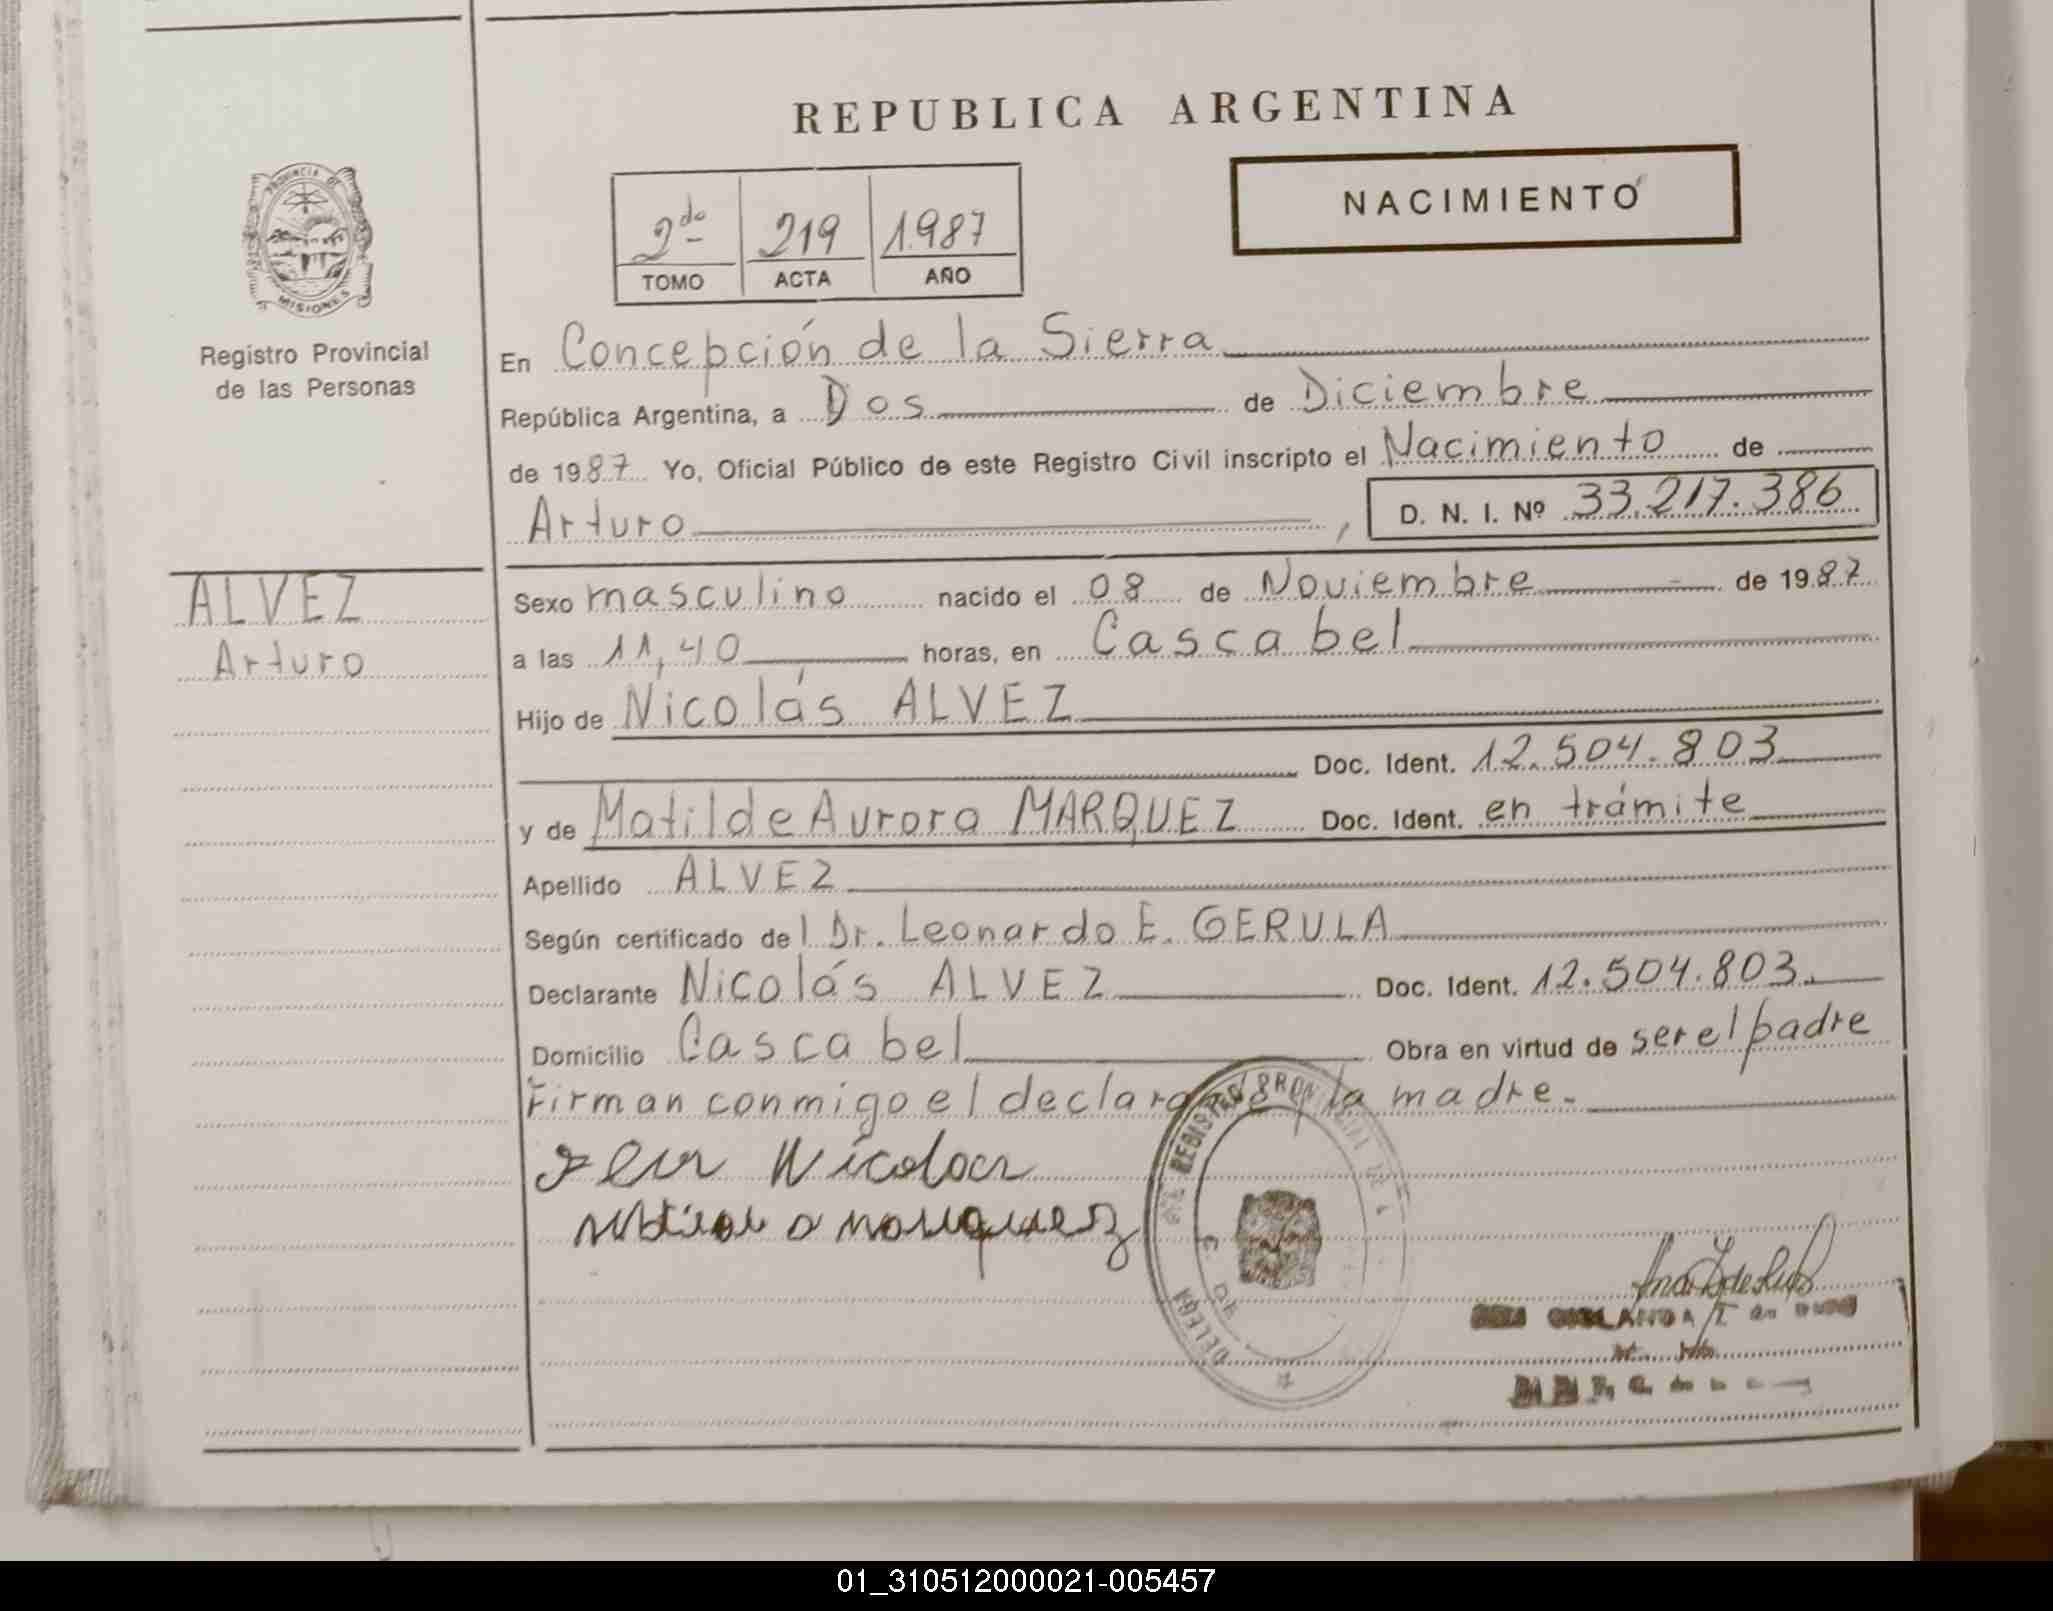 REPUBLICA ARGENTINA
NACIMIENTO
2do 219 1987
TOMO ACTA AÑO
PROVINCIA DE
MISIONES
Registro Provincial
de las Personas
En Concepción de la Sierra
República Argentina, a Dos de Diciembre
de 1987 Yo, Oficial Público de este Registro Civil inscripto el Nacimiento de
Arturo, D. N. I. Nº 33.217.386
ALVEZ
Arturo
Sexo masculino nacido el 08 de Noviembre de 1987
a las 11,40 horas, en Cascabel
Hijo de Nicolás ALVEZ
Doc. Ident. 12.504.803
y de Matilde Aurora MARQUEZ Doc. Ident. en trámite
Apellido ALVEZ
Según certificado del Dr. Leonardo E. GERULA
Declarante Nicolás ALVEZ Doc. Ident. 12.504.803.
Domicilio Cascabel Obra en virtud de ser el padre
Firman conmigo el declarante y la madre.
Nicolas
marquez
REGISTRO PROVINCIAL DE
DELEGA
01_310512000021-005457